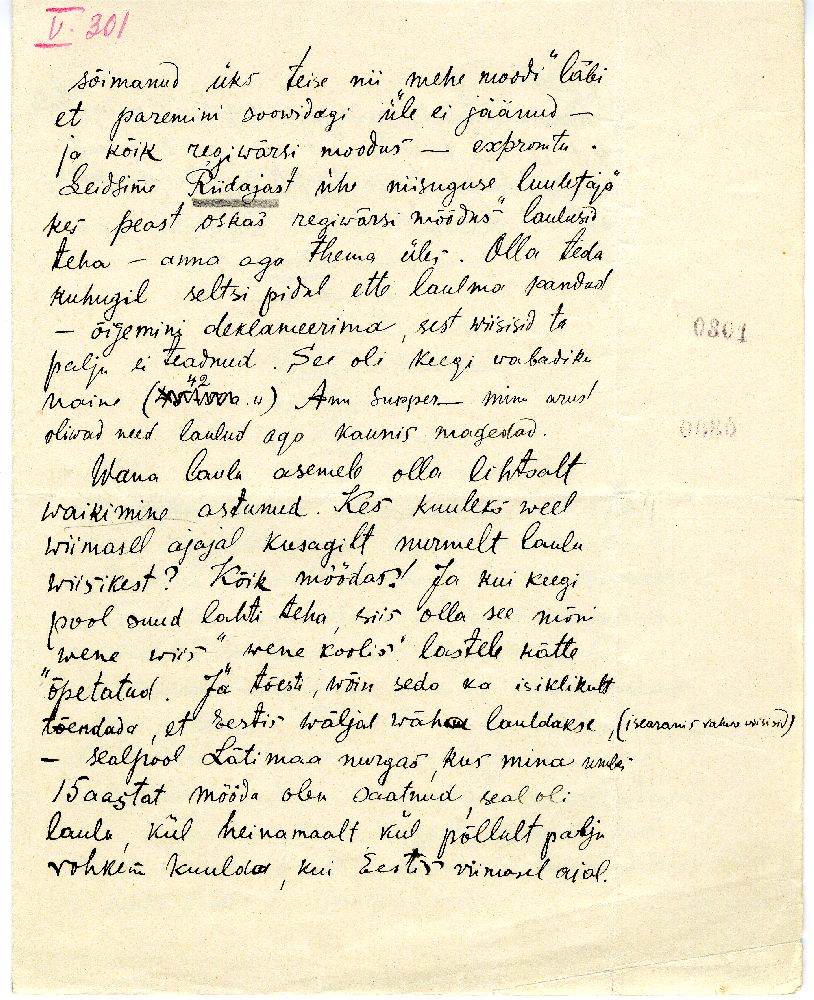 V. 301
sõimanud üks teise nii "mehe moodi" läbi
et paremini soowidagi üle ei jäänud —
ja kõik regiwärsi moodus — expromtu.
Leidsime Riidajast ühe niisuguse luuletaja
kes peast oskas regiwärsi moodus laulusid
teha — anna aga thema üles. Olla teda
kuhugil seltsi pidul ette laulma pandud
— õigemini deklameerima, sest wiisisid ta
palju ei teadnud. See oli keegi wabadiku
0301
naine (42 a.) Ann Supper — minu arust
oliwad need laulud aga kaunis magedad.
Wana laulu asemele olla lihtsalt
waikimine astunud. Kes kuuleks weel
wiimasel ajajal kusagilt nurmelt laulu
wiisikest? Kõik möödas! Ja kui keegi
pool suud lahti teha, siis olla see mõni
"wene wiis" wene koolis lastele kätte
õpetatud. Ja tõesti, wõin seda ka isiklikult
tõendada, et Eestis wäljal wähe lauldakse, (isearanis rahwa wiisisid)
— sealpool Lätimaa nurgas, kus mina umbes
15 aastat mööda olen saatnud, seal oli
laulu, kül heinamaalt kül põllult palju
rohkem kuulda, kui Eestis viimasel ajal.